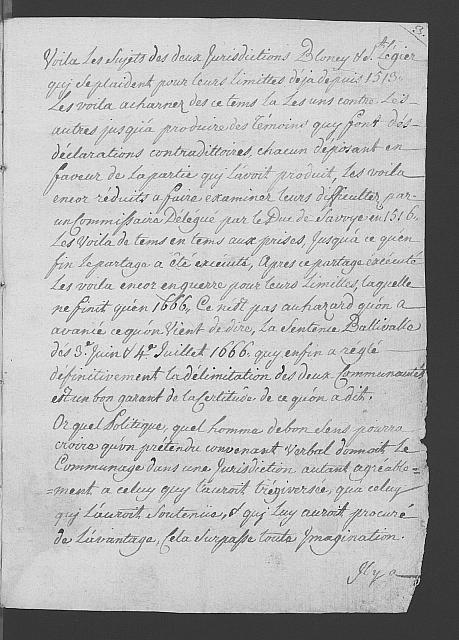 53.
Voila Les Sujets des deux Jurisdictions Bloney & St. Légier
qui se plaident pour leurs limittes déja depuis 1513.
Les voila acharnez des ce tems la Les uns contre Les
autres jusqu'à produire des Témoins quy font dés
déclarations contradittoires, chacun déposant en
faveur de La partie quj L'avoit produit, Les voila
encor réduits a faire examiner leurs difficultez par
un Commissaire Délégué par le Duc de Savoye en 1516.
Les Voila de tems en tems aux prises, Jusqu'à ce qu'en
fin Le partage a été exécuté, Apres ce partage exécuté
Les voila encor en guerre pour leurs Limittes, laquelle
ne finit qu'en 1666. Ce n'est pas au hazard qu'on a
avancé ce qu'on Vient de dire, La Sentence Ballivalle
dés 3e. Juin & 4e. Juillet 1666. quy enfin a réglé
définitivement la délimitation des deux Communautés
est un bon garant de la Certitude de ce qu'on a dit.
Or quel Politique, quel homme de bon Sens pourra
croire qu'un prétendu convenant verbal donnoit Le
Communage dans une Jurisdiction autant agréable=
=ment a celuy quy L'auroit trégiversée, qu'à celuy
quj L'auroit Soutenüe, & quj Luy auroit procuré
de L'avantage, Cela Surpasse toute Imagination.
Il y a